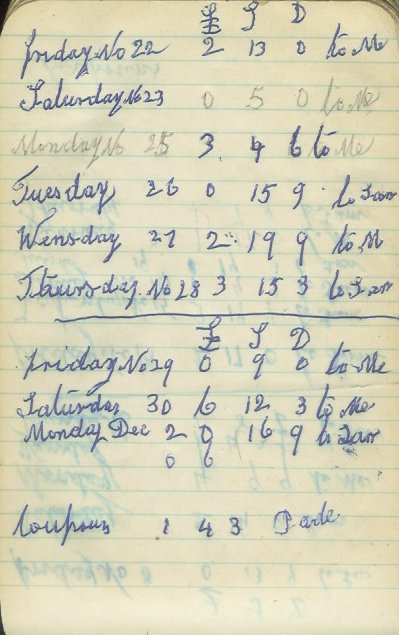 £ S D
Friday No 22 2 13 0 to Me
Saturday No 23 0 5 0 to Me
Monday No 25 3 4 6 to Me
Tuesday 26 0 15 9 to Ian
Wensday 27 2 19 9 to M
Thursday No 28 3 15 3 to Ian
£ S D
Friday No 29 0 9 0 to Me
Saturday 30 6 12 3 to Me
Monday Dec 2 0 16 9 to Ian
0 6
Coupons 1 4 3